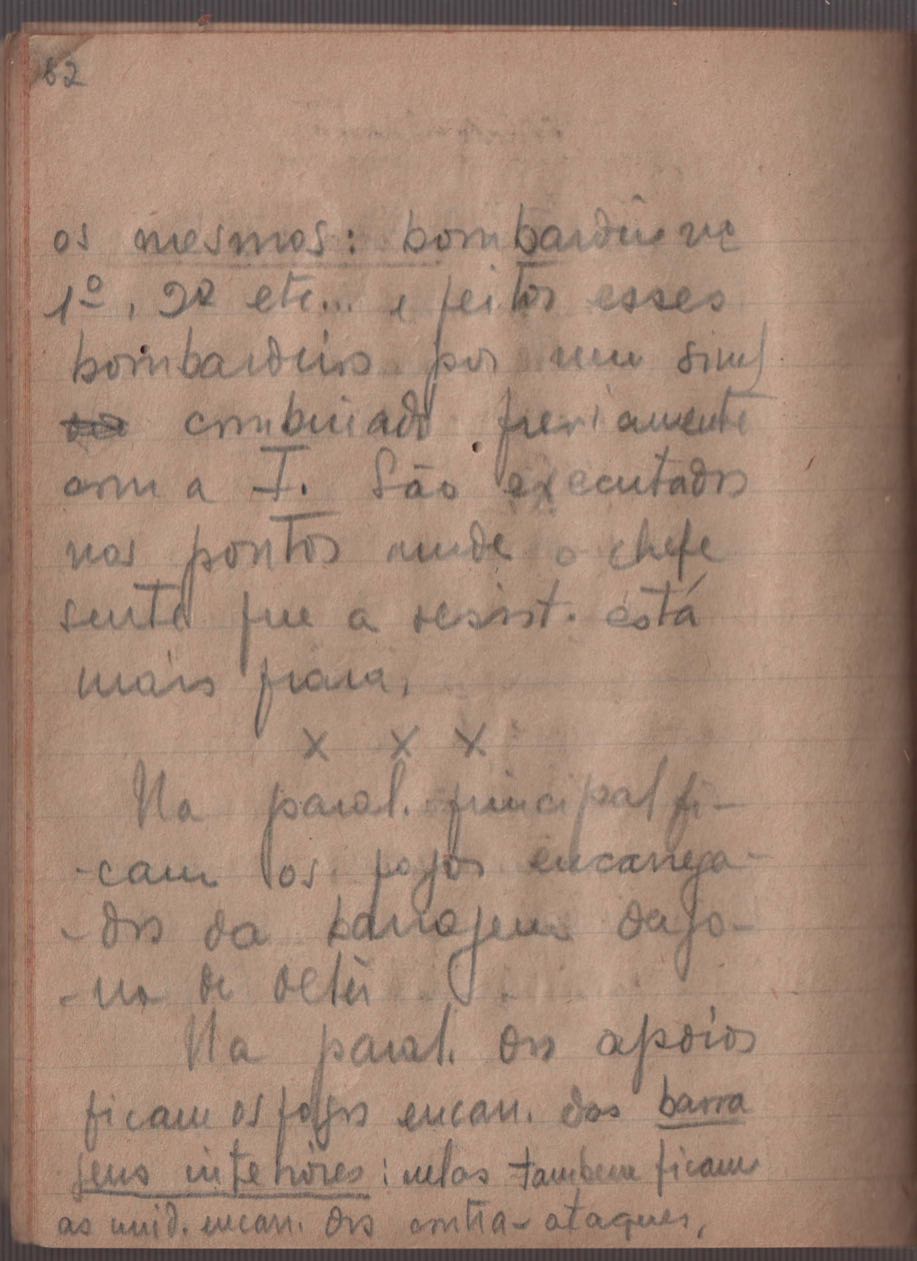 82
os mesmos: bombardeio nº
1º, 2º etc... e feitos esses
bombardeios por um sinal
combinado previamente
com a I. São executados
nos pontos onde o chefe
sente que a resist. está
mais fraca.
x x x
Na paral. principal fi-
-cam os fogos encarrega-
-dos da barragem da zo-
-na de deter
Na paral. dos apoios
ficam os fogos encarr. das barra
gens interiores: nelas tambem ficam
as unid. encarr. dos contra-ataques,